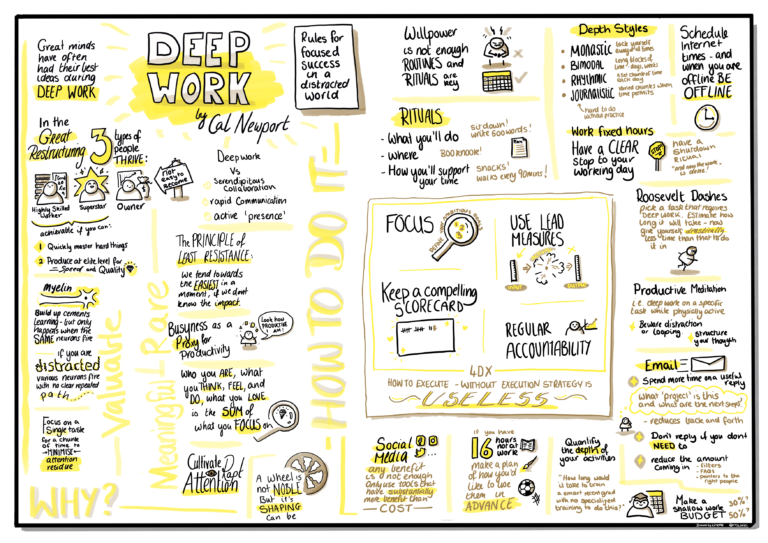 Great minds
have often
had their best
ideas during
DEEP WORK
DEEP
WORK
by Cal Newport
Rules for
focused
success
in a
distracted
world
In the
Great
Restructuring
3 types of
people
THRIVE:
Highly Skilled
Worker
Superstar
Owner
Not
easy to
become
achievable if you can:
1 Quickly master hard things
2 Produce at elite level for
= Speed and Quality
myelin
Build up cements
learning - but only
happens when the
SAME neurons fire
if you are
distracted
various neurons fire
with no clear repeated
path
Focus on a
Single task
for a chunk
of time to
MINIMISE
attention
residue
WHY?
Valuable
Meaningful + Rare
Deep work
Vs
Serendipitous
Collaboration
rapid Communication
active 'presence'
The PRINCIPLE of
LEAST RESISTANCE:
We tend towards
the EASIEST in a
moment, if we dnt
know the impact.
Busyness as a
Proxy for
Productivity
Look how
PRODUCTIVE
I AM!
Who you ARE, what
you THINK, FEEL, and
DO, what you LOVE
is the SUM of
what you FOCUS on
Cultivate Rapt
Attention
A wheel is
not NOBLE
But it's
SHAPING
Can be
HOW TO DO IT
Willpower
is not enough
ROUTINES and
RITUALS are
key
RITUALS
- What you'll do
sit down!
write 500 words!
- Where
BOOknook!
- How you'll support
your time
snacks!
walks every 90mins!
FOCUS
USE LEAD
MEASURES
Keep a compelling
SCORECARD
REGULAR
ACCOUNTABILITY
4DX
HOW TO EXECUTE - WITHOUT EXECUTION STRATEGY IS
USELESS
Social
Media
any benefit
is not enough
Only use tools that
have substantially
more benefit than
COST
if you have
16 hours not at
work
make a plan
of how you'd
like to use
them in
ADVANCE
Quantify
the depth of
your activities
"How long would
it take to train
a smart recent grad
with no specialized
training to do this?"
Depth Styles
• MONASTIC
lock yourself
away at all times
• BIMODAL
Long blocks of
time - days, weeks
• RHYTHMIC
a set chunk of time
each day
• JOURNALISTIC
varied chunks when
time permits
hard to do
without practice
Work fixed hours
Have a CLEAR
stop to your
working day
STOP
have a
shutdown
ritual
Schedule
Internet
times - and
when you are
offline BE
OFFLINE
Roosevelt Dashes
pick a task that requires
DEEP WORK. Estimate how
long it will take - now
give yourself drastically
less time than that to do
it in
Productive Meditation
i.e. deep work on a specific
task while physically active
Beware distraction
or looping
Structure
your thought
Email =
Spend more time on a useful
reply
What 'project' is this
and what are the next steps?
- reduces back and forth
Don't reply if you dont
NEED to
reduce the amount
Coming in
- filters
- FAQs
- pointers to the
right people
Make a
shallow work
BUDGET
30%?
50%?